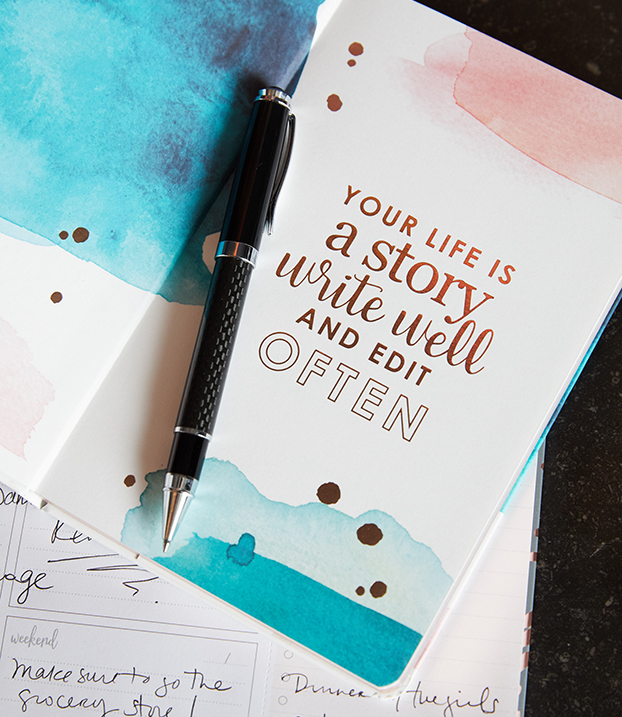 YOUR LIFE IS
a story
write well
AND EDIT
OFTEN
weekend
make sure to go the
grocery store!
Dinner
the girls